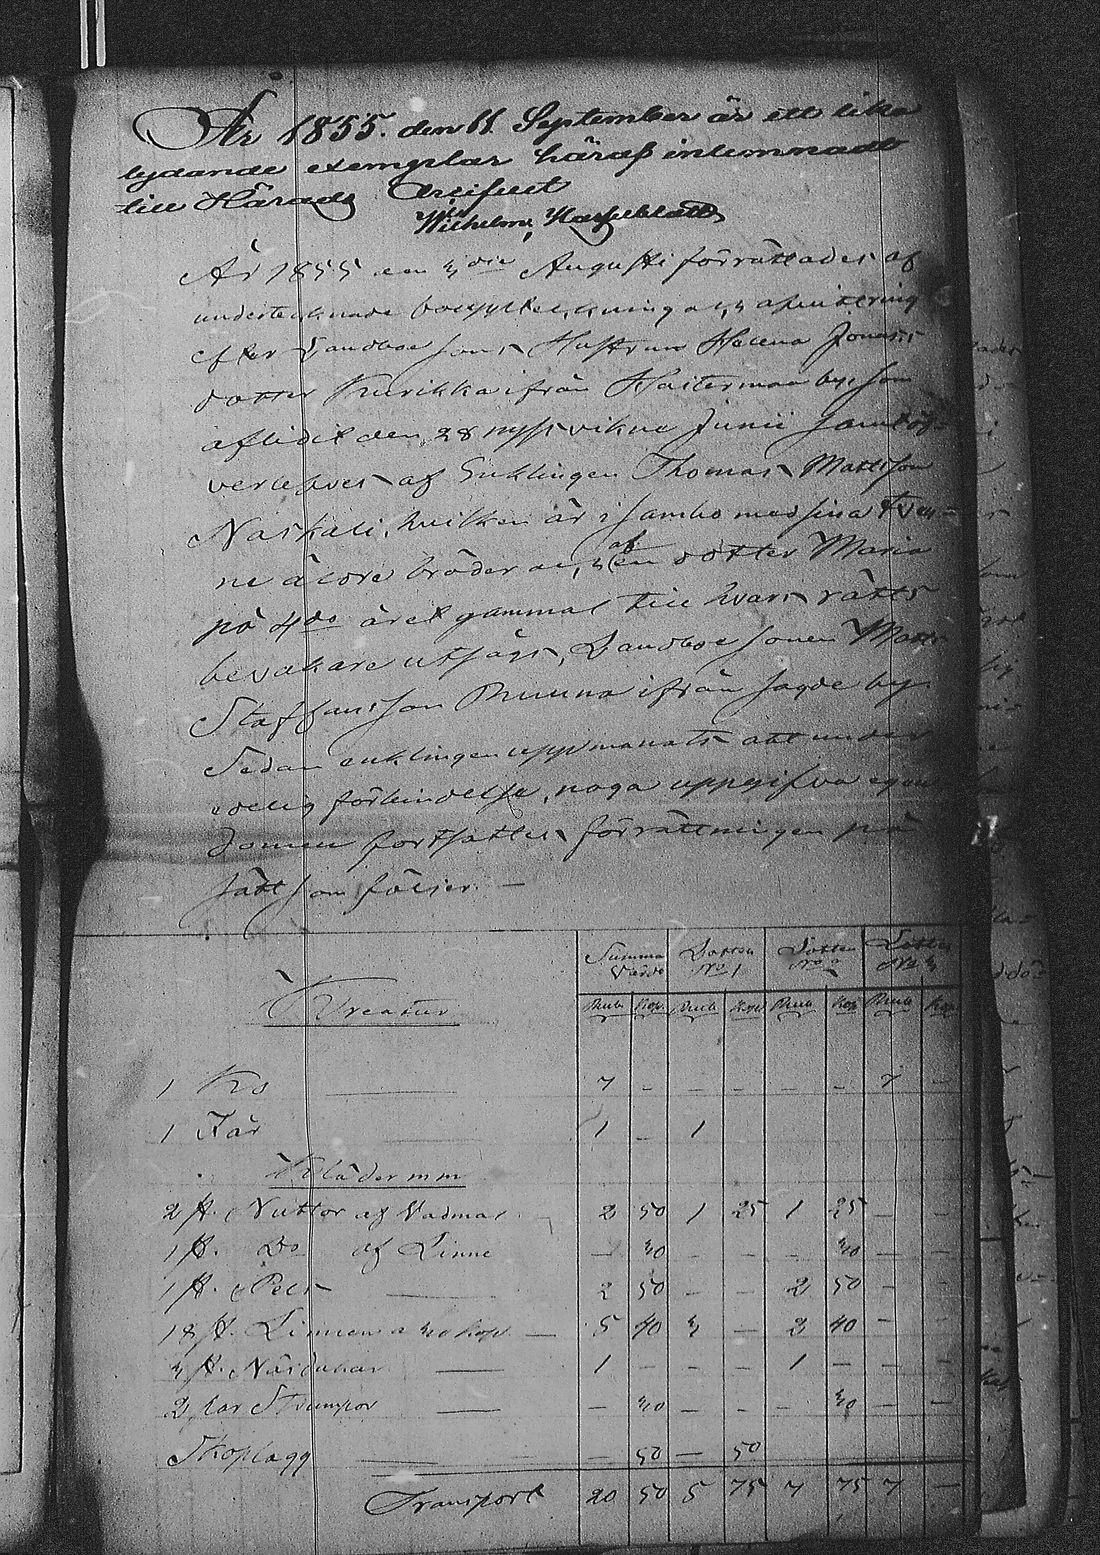 År 1855. den 11. September är ett lika
lydande exemplar häraf inlemnadt
till Härads Archivet
Wilhelm Hasselblatt
År 1855 den 3die Augusti förrättades af
undertecknade bouppteckning och afvittring
efter Landboe Sons Hustrun Helena Jonas
dotter Kurikka ifrån by, som
aflidit den 28 nystvikne Junii samt öf-
verlefves af Enklingen Thomas Mattsson
Naskali, hvilken är i sambo med sina tven-
ne äldre bröder och af en dotter Maria
på 4de året gammal till hvars rätts
bevakare utsågs, Landboe Sonen Matts
Staffansson Ruuna ifrån sagde by.
Sedan enklingen uppmanats att under
edelig förbindelse, noga uppgifva egen
domen fortsattes förrättningen på
sätt som följer. —
Summa Värde Lotten No 1 Lotten No 2 Lotten No 3
Creatur Rub Kop Rub Kop Rub Kop Rub Kop
1 Ko — 7 – – – – – 7 –
1 Får — 1 – 1
Kläder m m
2 st. Kuttor af Vadmal 2 50 1 25 1 25 – –
1 st. Do af Linne — 30 – – – 30 – –
1 st. Pels — 2 50 – – 2 50 – –
18 st. Linnen a 30 kop — 5 40 3 – 2 40 – –
3 st. Näsdukar — 1 – – – 1 – – –
2 par Strumpor — – 30 – – – 30 – –
Skoplagg — – 50 – 50
Transport 20 50 5 75 7 75 7 –